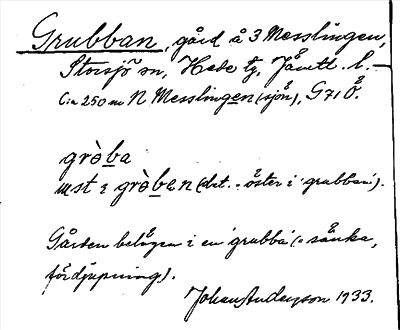 Grubban, gård å 3 Messlingen,
Storsjö sn, Hede tg, Jämtl. l.
C:a 250 m N Messlingen (sjön), G 71 Ö.
gròba
ust i gròben (det. = öster i 'grubban').
Gården belägen i en 'grubba' (= sänka,
fördjupning).
Johan Anderzson 1933.